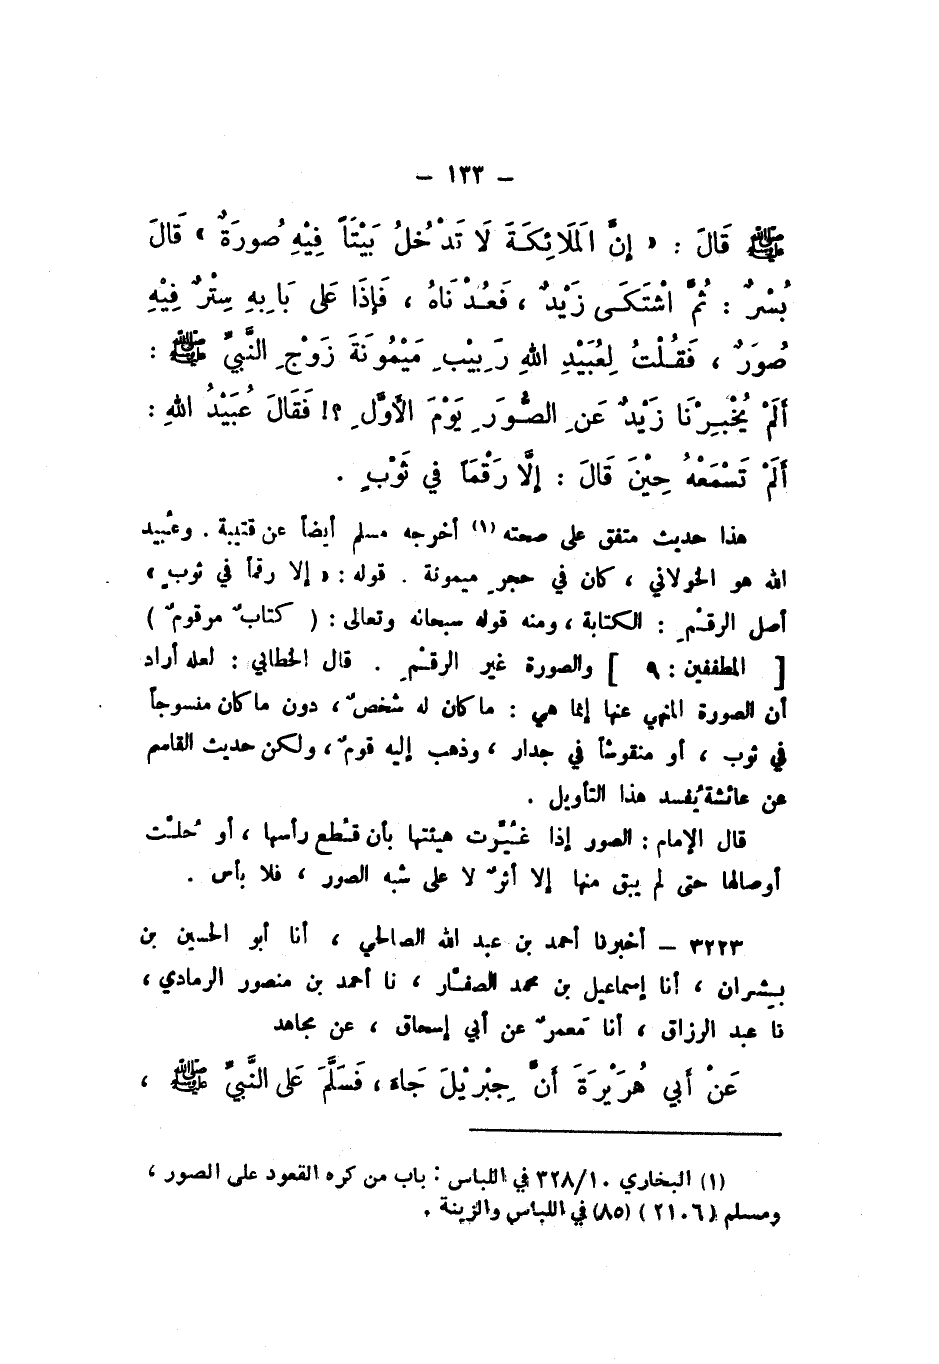 – ١٣٣ –
ﷺ قَالَ : « إِنَّ الَمَلَائِكَةَ لَا تَدْخُلُ بَيْتَاً فِيْهِ صُورَةٌ » قَالَ
بُسْرٌ : ثُمَّ اشْتَكَى زَيْدٌ ، فَعُدْنَاهُ ، فَإِذَا عَلى بَابِهِ سِتْرٌ فِيْهِ
صُوَرٌ ، فَقُلْتُ لِعُبَيْدِ اللهِ رَبِيْبِ مَيْمُونَةَ زَوْجِ النَّبيِّ ﷺ :
أَلَمْ يُخْبِرْنَا زَيْدٌ عَنِ الصُّوَرِ يَوْمَ الأَوَّلِ ؟! فَقَالَ عُبَيْدُ اللهِ :
أَلَمْ تَسْمَعْهُ حِيْنَ قَالَ : إِلَّا رَقْمَاً في ثَوْبٍ .
هذا حديث متفق على صحته (١) أخرجه مسلم أيضاً عن قتيبة . وعُبيد
الله هو الخولاني ، كان في حجرِ ميمونة . قوله : « إلا رقماً في ثوبٍ »
أصل الرقْمِ : الكتابة ، ومنه قوله سبحانه وتعالى : ( كتابٌ مرقومٌ )
[ المطففين : ٩ ] والصورة غير الرقْمِ . قال الخطابي : لعله أراد
أن الصورة المنهي عنها إنما هي : ما كان له شخصٌ ، دون ما كان منسوجاً
في ثوب ، أو منقوشاً في جدار ، وذهب إليه قومٌ ، ولكن حديث القاسم
عن عائشة يُفسد هذا التأويل .
قال الإمام : الصور إذا غُيِّرت هيئتها بأن قُطع رأسها ، أو حُلت
أوصالها حتى لم يبق منها إلا أثرٌ لا على شبه الصور ، فلا بأس .
٣٢٢٣ – أخبرنا أحمد بن عبد الله الصالحي ، أنا أبو الحسين بن
بِشران ، أنا إسماعيل بن محمد الصفّار ، نا أحمد بن منصور الرمادي ،
نا عبد الرزاق ، أنا مَعمرٌ عن أبي إسحاق ، عن مجاهد
عَنْ أَبي هُرَيْرَةَ أَنَّ جِبْرِيْلَ جَاءَ ، فَسَلَّمَ عَلى النَّبيِّ ﷺ ،
(١) البخاري ٣٢٨/١٠ في اللباس : باب من كره القعود على الصور ،
ومسلم (٢١٠٦) (٨٥) في اللباس والزينة .